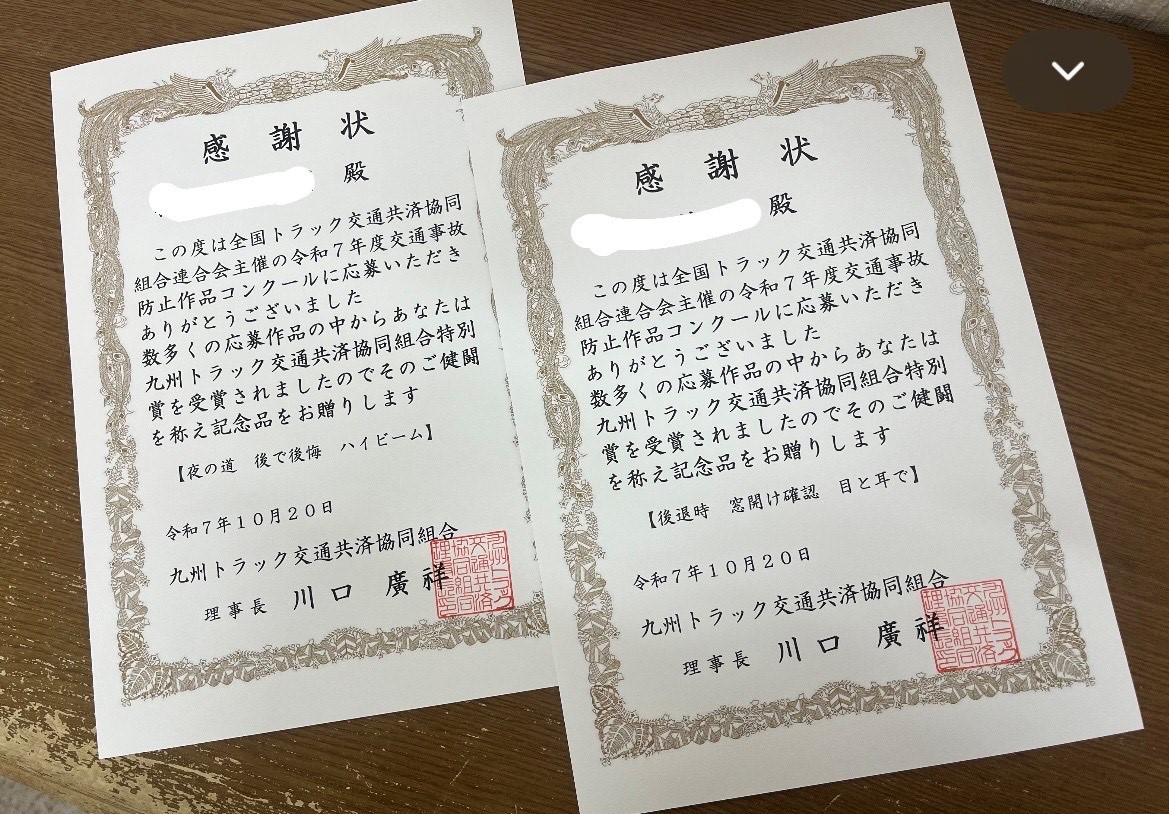 感謝状
殿
この度は全国トラック交通共済協同
組合連合会主催の令和７年度交通事故
防止作品コンクールに応募いただき
ありがとうございました
数多くの応募作品の中からあなたは
九州トラック交通共済協同組合特別
賞を受賞されましたのでそのご健闘
を称え記念品をお贈りします
【夜の道　後で後悔　ハイビーム】
令和７年１０月２０日
九州トラック交通共済協同組合
理事長　川口　廣祥
感謝状
殿
この度は全国トラック交通共済協同
組合連合会主催の令和７年度交通事故
防止作品コンクールに応募いただき
ありがとうございました
数多くの応募作品の中からあなたは
九州トラック交通共済協同組合特別
賞を受賞されましたのでそのご健闘
を称え記念品をお贈りします
【後退時　窓開け確認　目と耳で】
令和７年１０月２０日
九州トラック交通共済協同組合
理事長　川口　廣祥